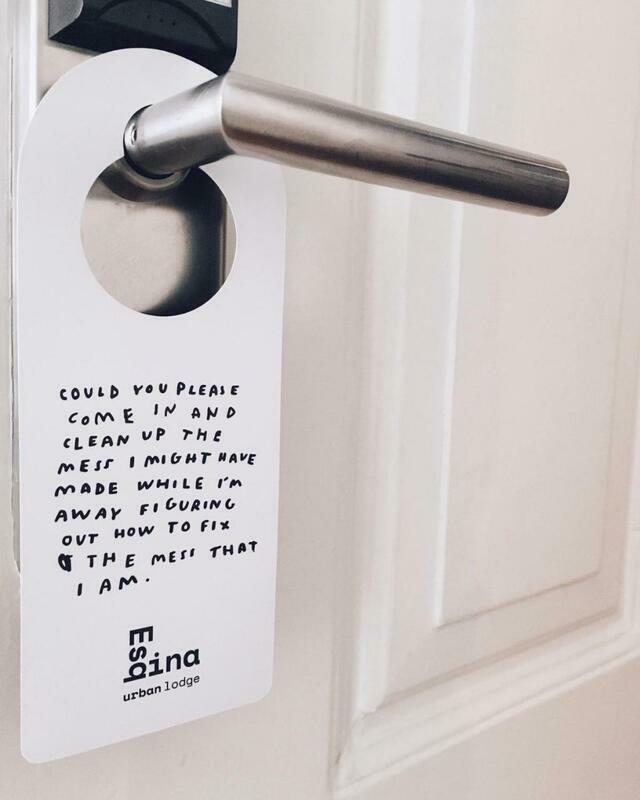 COULD YOU PLEASE
COME IN AND
CLEAN UP THE
MESS I MIGHT HAVE
MADE WHILE I'M
AWAY FIGURING
OUT HOW TO FIX
THE MESS THAT
I AM.
Esqina
urban lodge